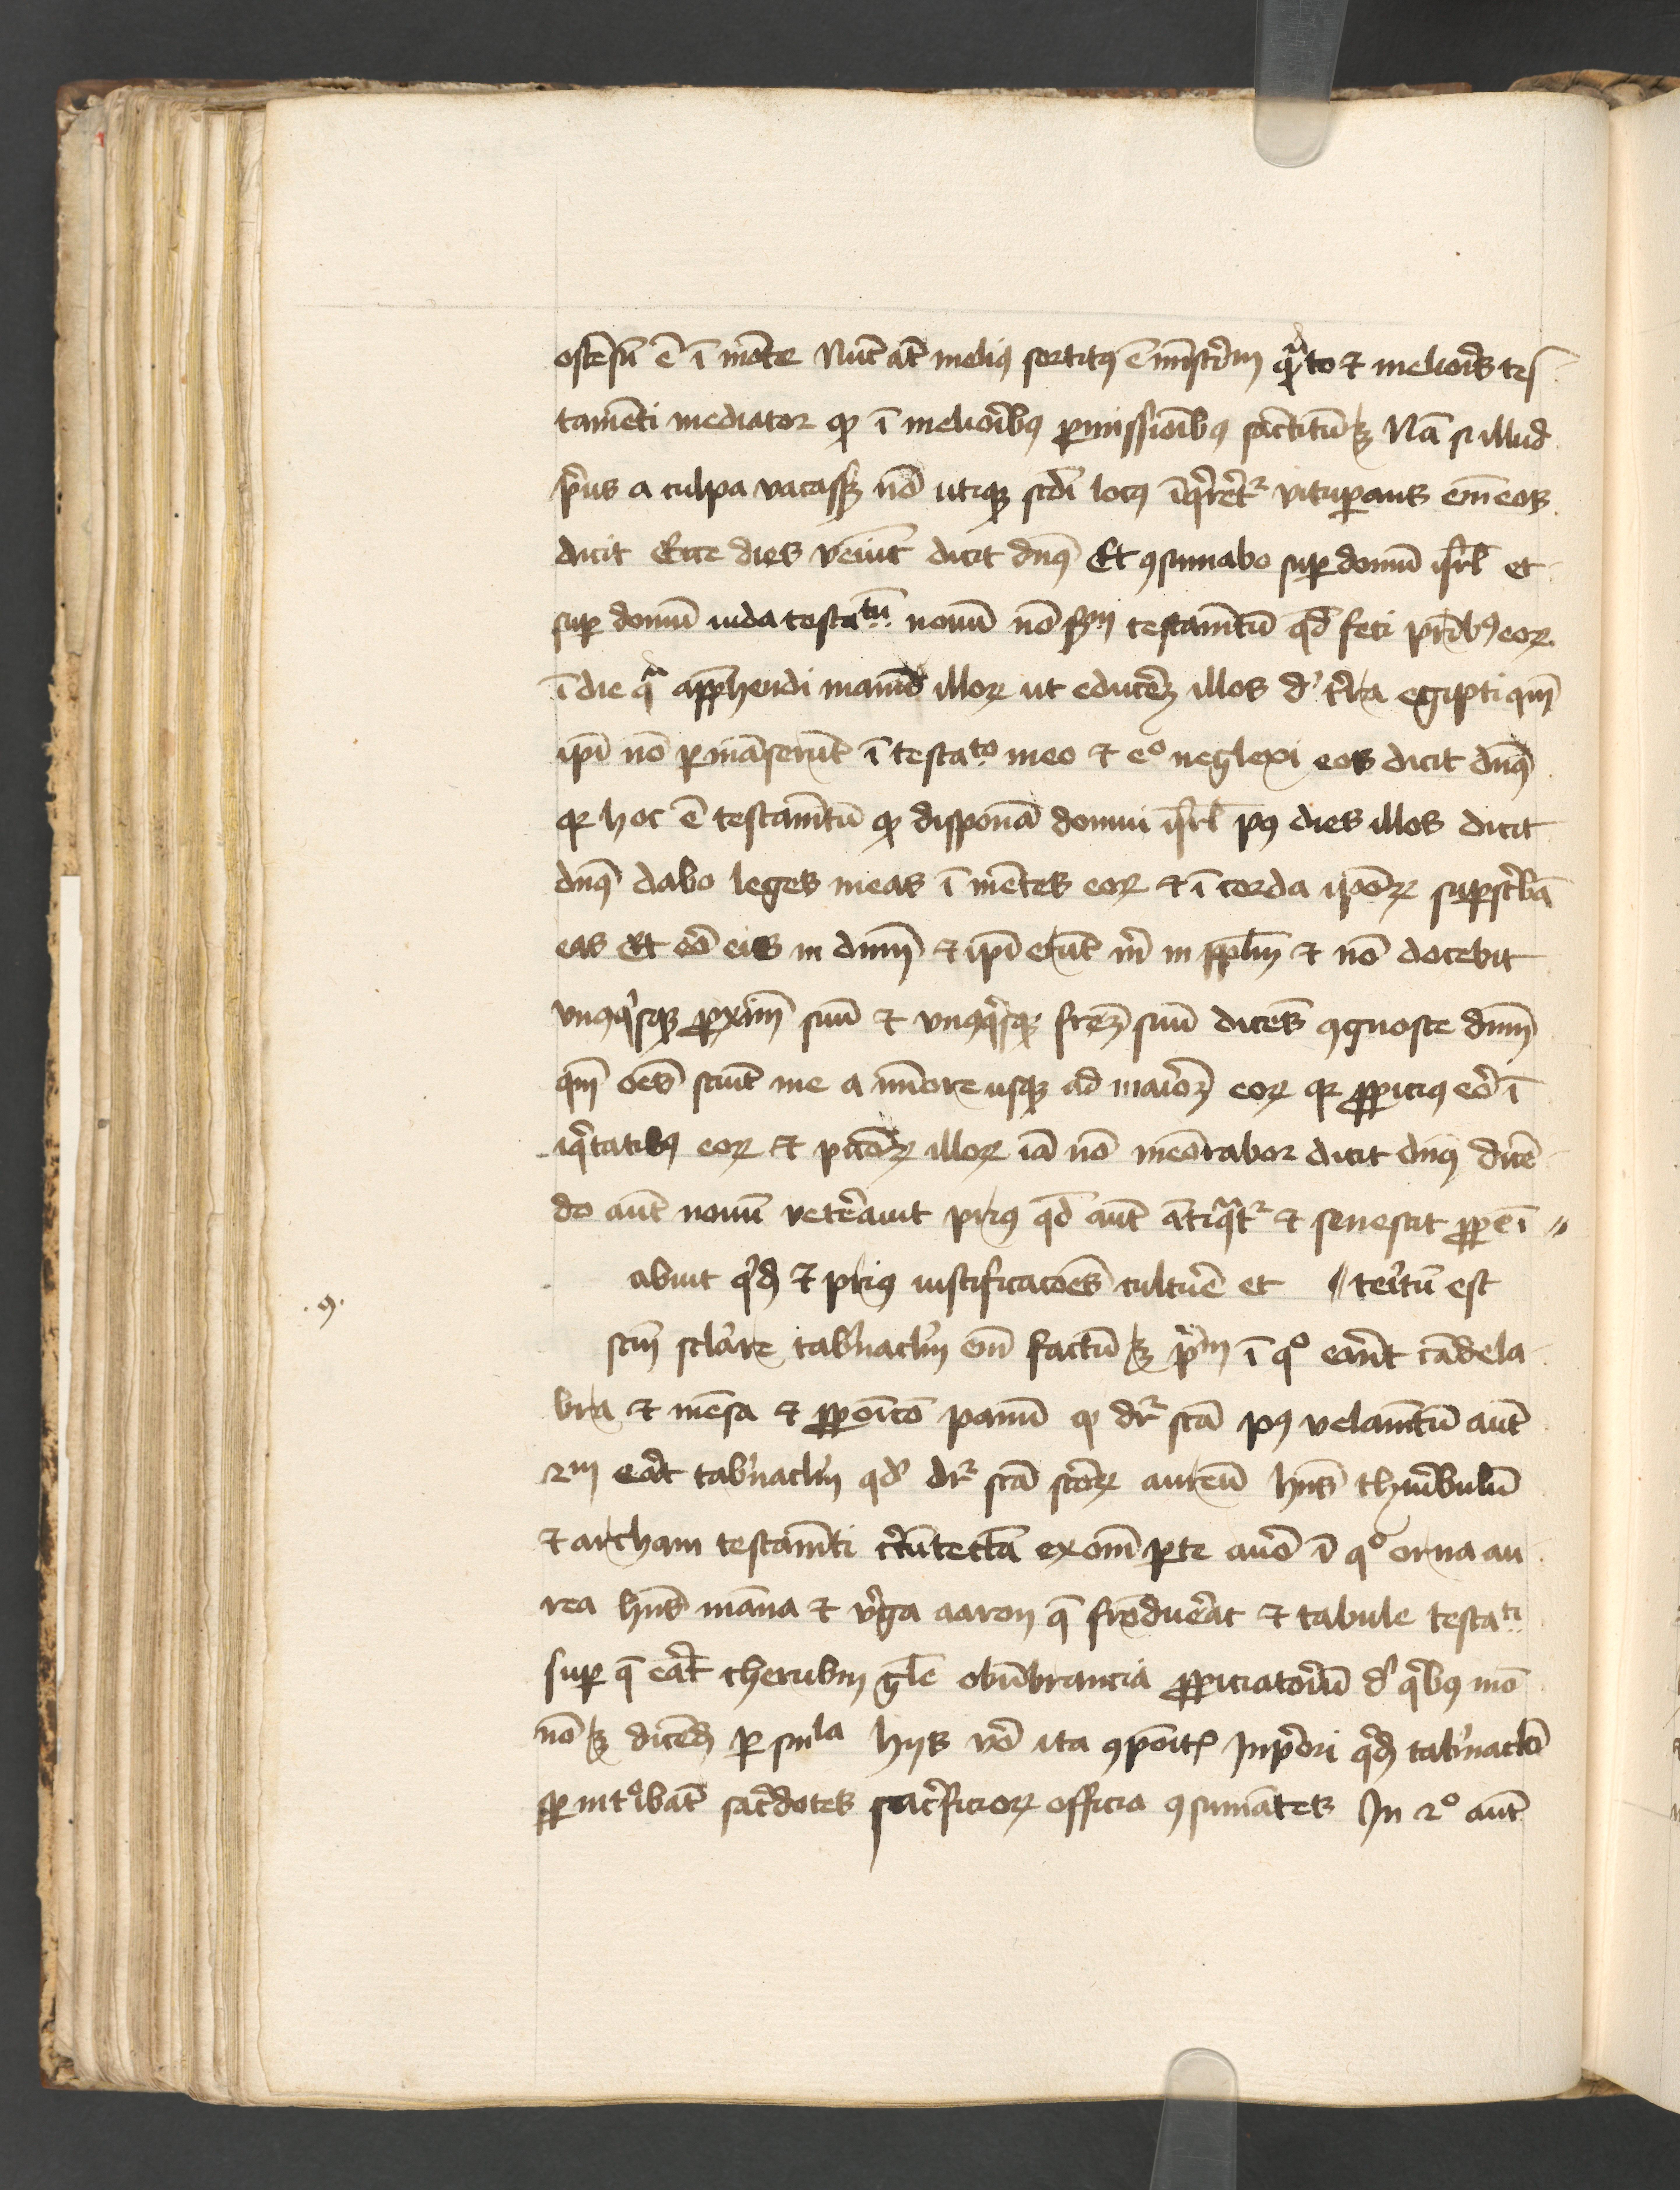 ostēsū ē ī mōte Nūc at̄ meliꝰ sortitꝰ ē mīstr̄iū qͣto ⁊ melioris tes
tamēti mediator qͥ ī meliorībꝰ ꝓmissionībꝰ sāctitū ꝫ Nā si illud
pͥus a culpa vacassꝫ nō utiqꝫ scd̄i locꝰ īqͥreret᷑ vituꝑans em̄ eos
dicit Ecce dies veniūt dicit dn̄s Et ꝯsumabo suꝑ domū isrl̄ et
suꝑ domū iuda testatū nouū nō scd̄m testam̄tū qd̄ feci pr̄ibꝰ eoꝝ
ī die qͣ appͪhendi manū illoꝝ ut educerē illos de t̄ra egipti qm̄
ipī nō ꝑmāserūt ī testato meo ⁊ eͦ neglexi eos dicit dn̄s
qꝛ hoc ē testam̄tū qd̄ disponā domui isrl̄ pꝰ dies illos dicit
dn̄s dabo leges meas ī mētes eoꝝ ⁊ ī corda ipoꝝ suꝑscͥbā
eas Et eō eis in dn̄m ⁊ ipī erūt m̄ in ppl̄m ⁊ nō docebit
vnꝰqͥsqꝫ ꝓximū suū ⁊ vnꝰqͥsqꝫ fr̄em suū dicēs ꝯgnosce dn̄m
qm̄ oēs sciēt me a mīore usqꝫ ad maiorē eoꝝ qꝛ ꝓpiciꝰ eō ī
iqͥtatibꝰ eoꝝ ⁊ pccōꝝ illoꝝ iā nō meōrabor dicit dn̄s dicē
do aūt nouū vet̄auit priꝰ qd̄ aūt ātiqͣt᷑ ⁊ senescit ꝓpe ī //
abuit qͥdē ⁊ priꝰ iustificacōes culturē et // teritū est
.9.
sc̄m sclare tab̄nacl̄m em̄ factū ꝫ pͥm ī qͦ erāt cādela
bra ⁊ mēsa ⁊ ꝓpoīcō panū qꝫ dr̄ scā pꝰ velam̄tū aūt
2m erāt tab̄nacl̄m qd̄ dr̄ scā scōꝝ aureū hn̄s thuribulū
⁊ archam testam̄ti cͥcūtectā ex omī ꝑte auro ī qͦ orna au
rea hn̄s māna ⁊ vͥga aaron q̄ frōduerat ⁊ tabule testati
suꝑ q̄ erāt cherubin gl̄e obūbrancia ꝓpiciatoriū de qͥbꝰ mo
nō ꝫ dicēdū ꝑ sīnla hijs vō ita ꝯpoītꝭ In pͥori qͥdē tab̄naclo
sꝑ intͦibāt sacͬdotes sacͥficioꝝ officia ꝯsumātes In 2ͦ aūt